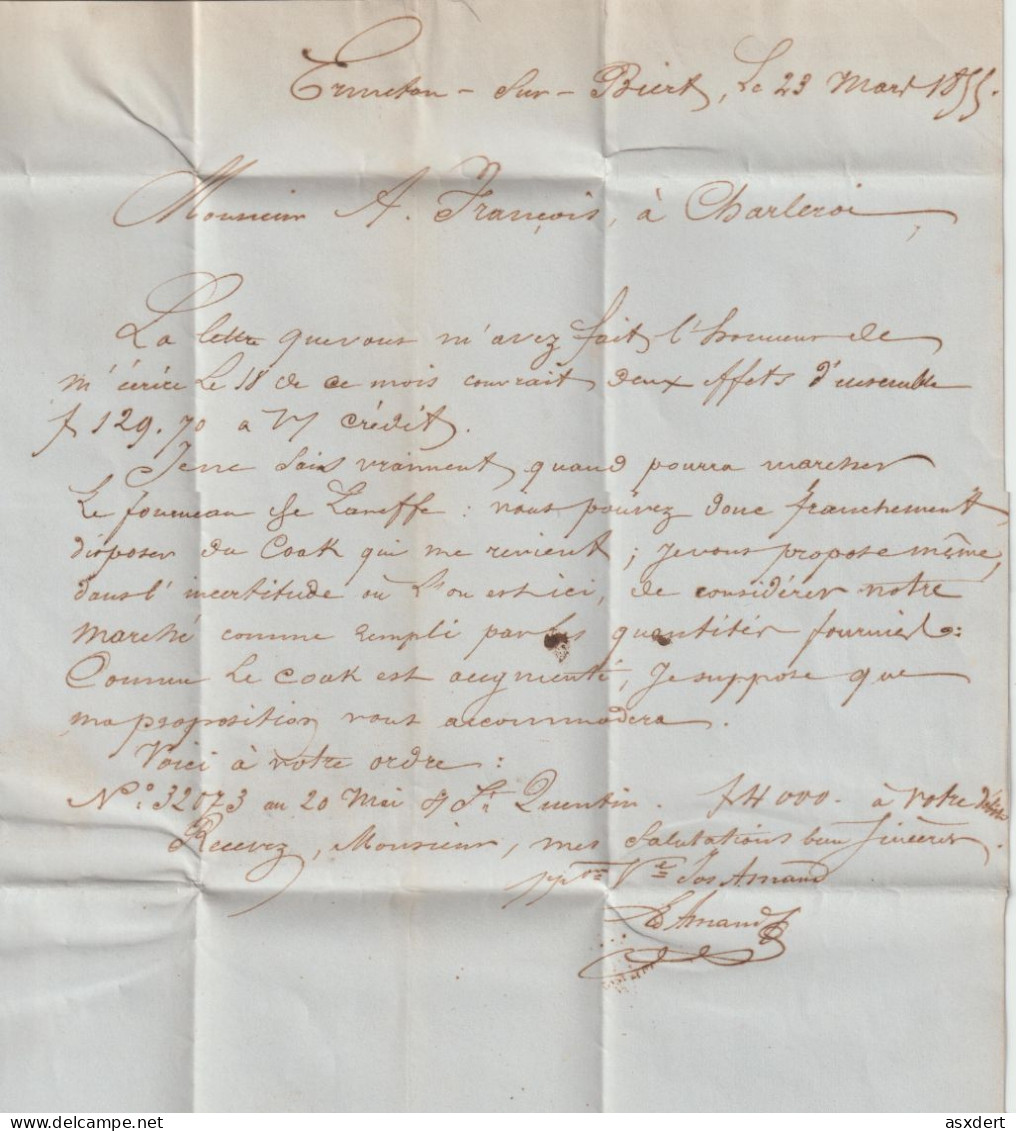 Ermeton - Sur - Biert, Le 23 Mars 1855.
Monsieur A. François, à Charleroi,
La lettre que vous m'avez fait l'honneur de
m'écrire Le 18 de ce mois couvrait deux effets d'ensemble
f 129.70 a V/ crédit.
Je ne sais vraiment quand pourra marcher
Le fourneau de Laneffe : vous pouvez donc franchement
disposer du Coak qui me revient ; Je vous propose même,
dans l'incertitude où L'on est ici, de considérer notre
marché comme rempli par les quantités fournies :
Comme Le coak est augmenté, Je suppose que
ma proposition vous accommodera.
Voici à votre ordre :
N.° 32073 au 20 Mai St. Quentin. f 4000. à votre débit
Recevez, Monsieur, mes Salutations bien sincères.
pp.on Ve Jos Amand
Amand
asxdert